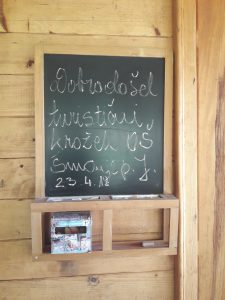 Dobrodošel
turistični
krožek OŠ
Šmarj. p. J.
23. 4. 18